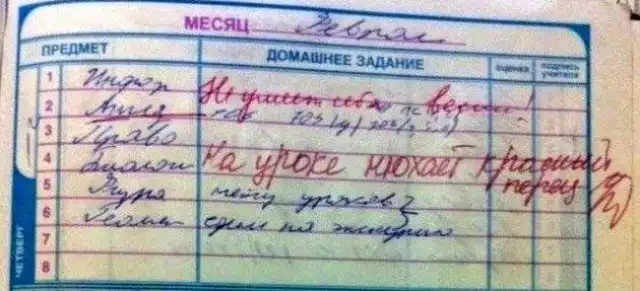 МЕСЯЦ Феврал
ПРЕДМЕТ ДОМАШНЕЕ ЗАДАНИЕ оценка подпись учителя
1 Инфор
Не умеет себя вести!
2 Англ
3 Право
4 Биологи На уроке нюхает красный
перец
5 Физра нету уроков
6 Геомет
7
8
ЧЕТВЕРГ